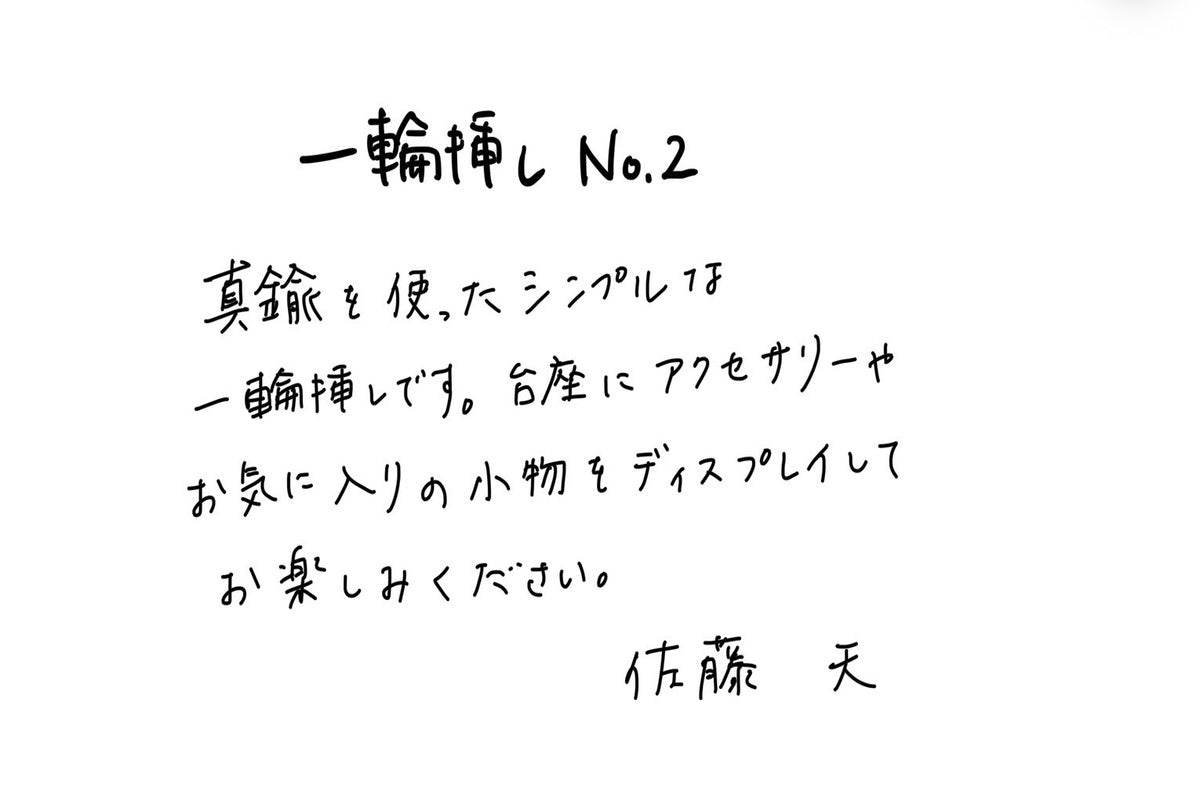 一輪挿し No.2
真鍮を使ったシンプルな
一輪挿しです。台座にアクセサリーや
お気に入りの小物をディスプレイして
お楽しみください。
佐藤 天